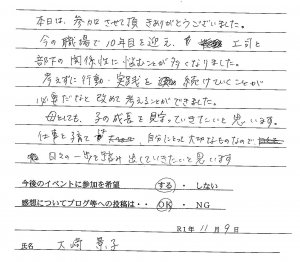 本日は、参加させて頂きありがとうございました。
今の職場で10年目を迎え、上司と
部下の関係性に悩むことが多くなりました。
考えずに行動・実践を続けていくことが
必要だなと改めて考えることができました。
母としても、子の成長を見守っていきたいと思います。
仕事と子育て 自分にとって大切なものなので
日々の一歩を踏み出していきたいと思います
今後のイベントに参加を希望 する ・ しない
感想についてブログ等への投稿は・・ OK ・ NG
R1年 11月 9日
氏名 大崎 子